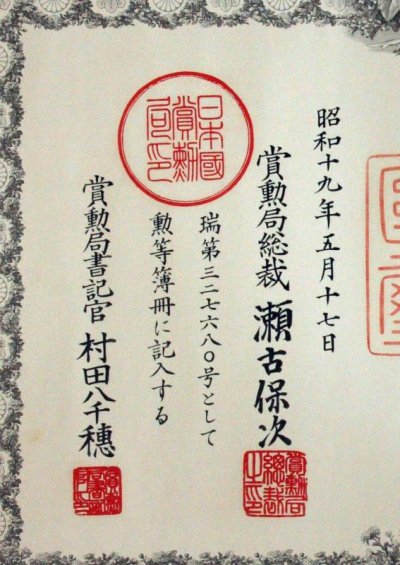 昭和十九年五月十七日
賞勲局総裁 瀬古保次
日本國賞勲局印
賞勲局総裁之印
瑞第三二七六八〇号として
勲等簿冊に記入する
賞勲局書記官 村田八千穗